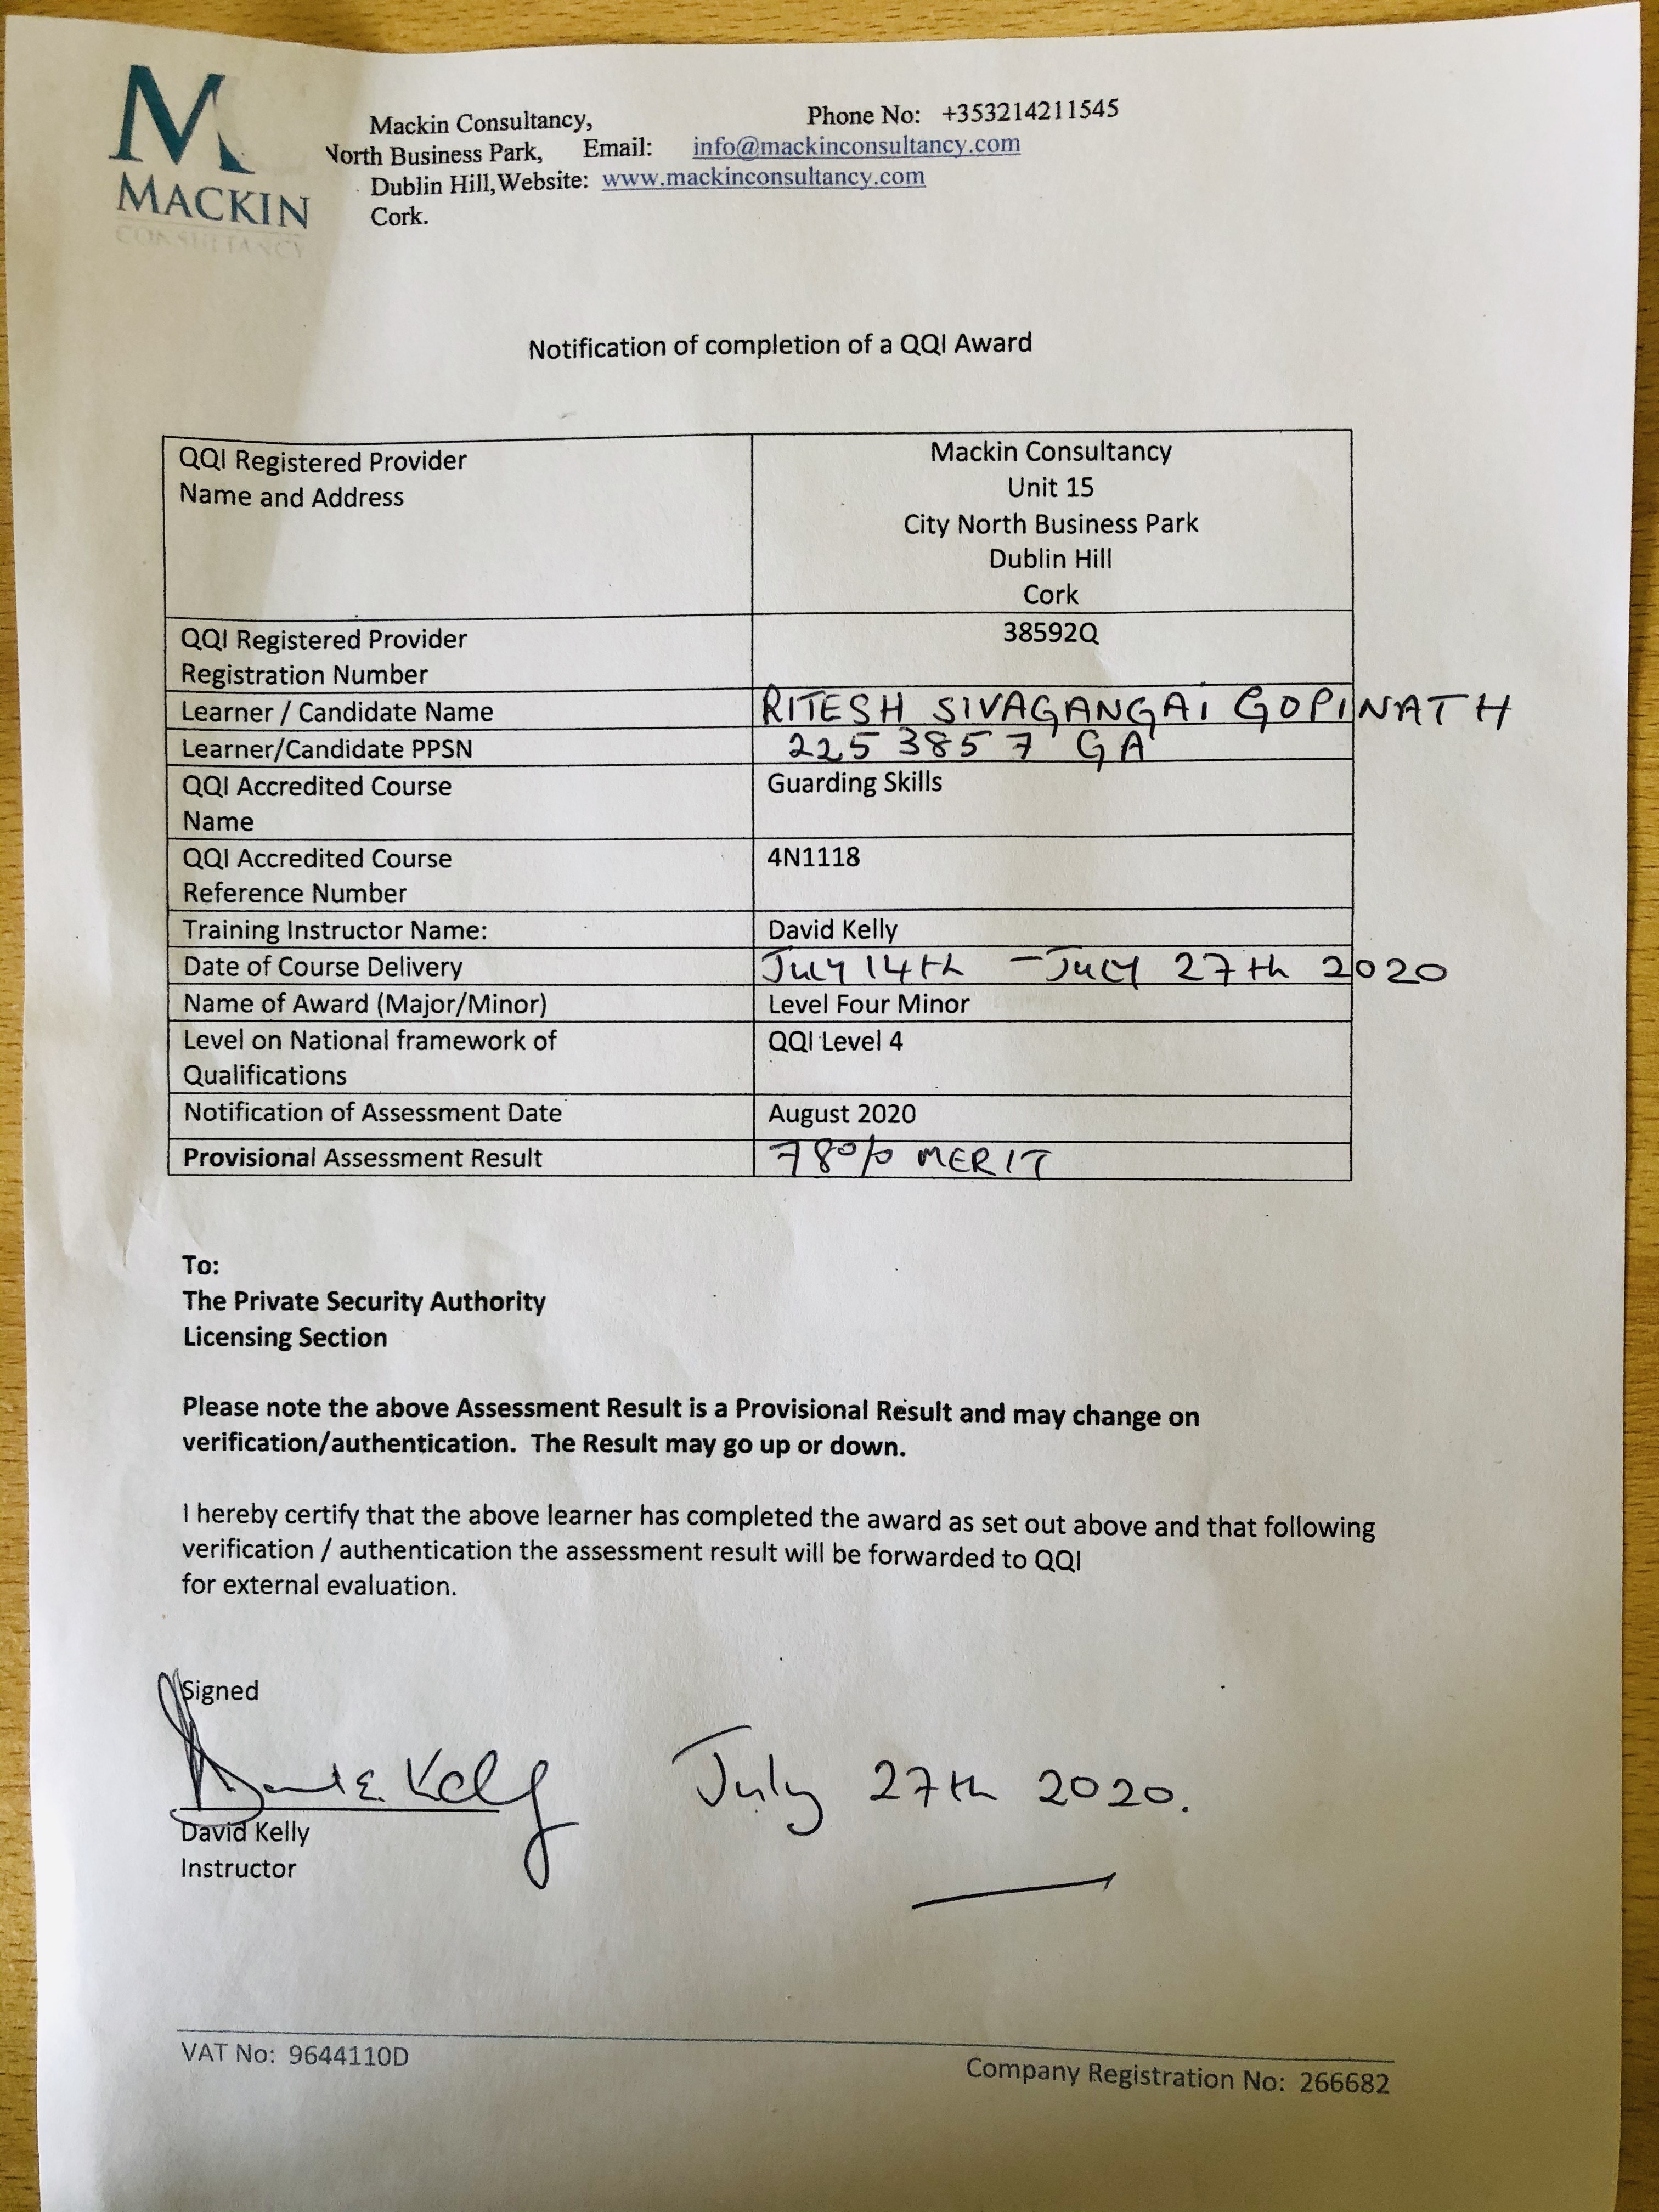 MACKIN
CONSULTANCY
Mackin Consultancy, Phone No: +353214211545
North Business Park, Email: info@mackinconsultancy.com
Dublin Hill, Website: www.mackinconsultancy.com
Cork.
Notification of completion of a QQI Award
QQI Registered Provider
Name and Address
Mackin Consultancy
Unit 15
City North Business Park
Dublin Hill
Cork
QQI Registered Provider
Registration Number
38592Q
Learner / Candidate Name RITESH SIVAGANGAI GOPINATH
Learner/Candidate PPSN 225 385 7 GA
QQI Accredited Course
Name
Guarding Skills
QQI Accredited Course
Reference Number
4N1118
Training Instructor Name: David Kelly
Date of Course Delivery July 14th - July 27th 2020
Name of Award (Major/Minor) Level Four Minor
Level on National framework of
Qualifications
QQI Level 4
Notification of Assessment Date August 2020
Provisional Assessment Result 78% MERIT
To:
The Private Security Authority
Licensing Section
Please note the above Assessment Result is a Provisional Result and may change on
verification/authentication. The Result may go up or down.
I hereby certify that the above learner has completed the award as set out above and that following
verification / authentication the assessment result will be forwarded to QQI
for external evaluation.
Signed
David Kelly July 27th 2020.
David Kelly
Instructor
VAT No: 9644110D
Company Registration No: 266682